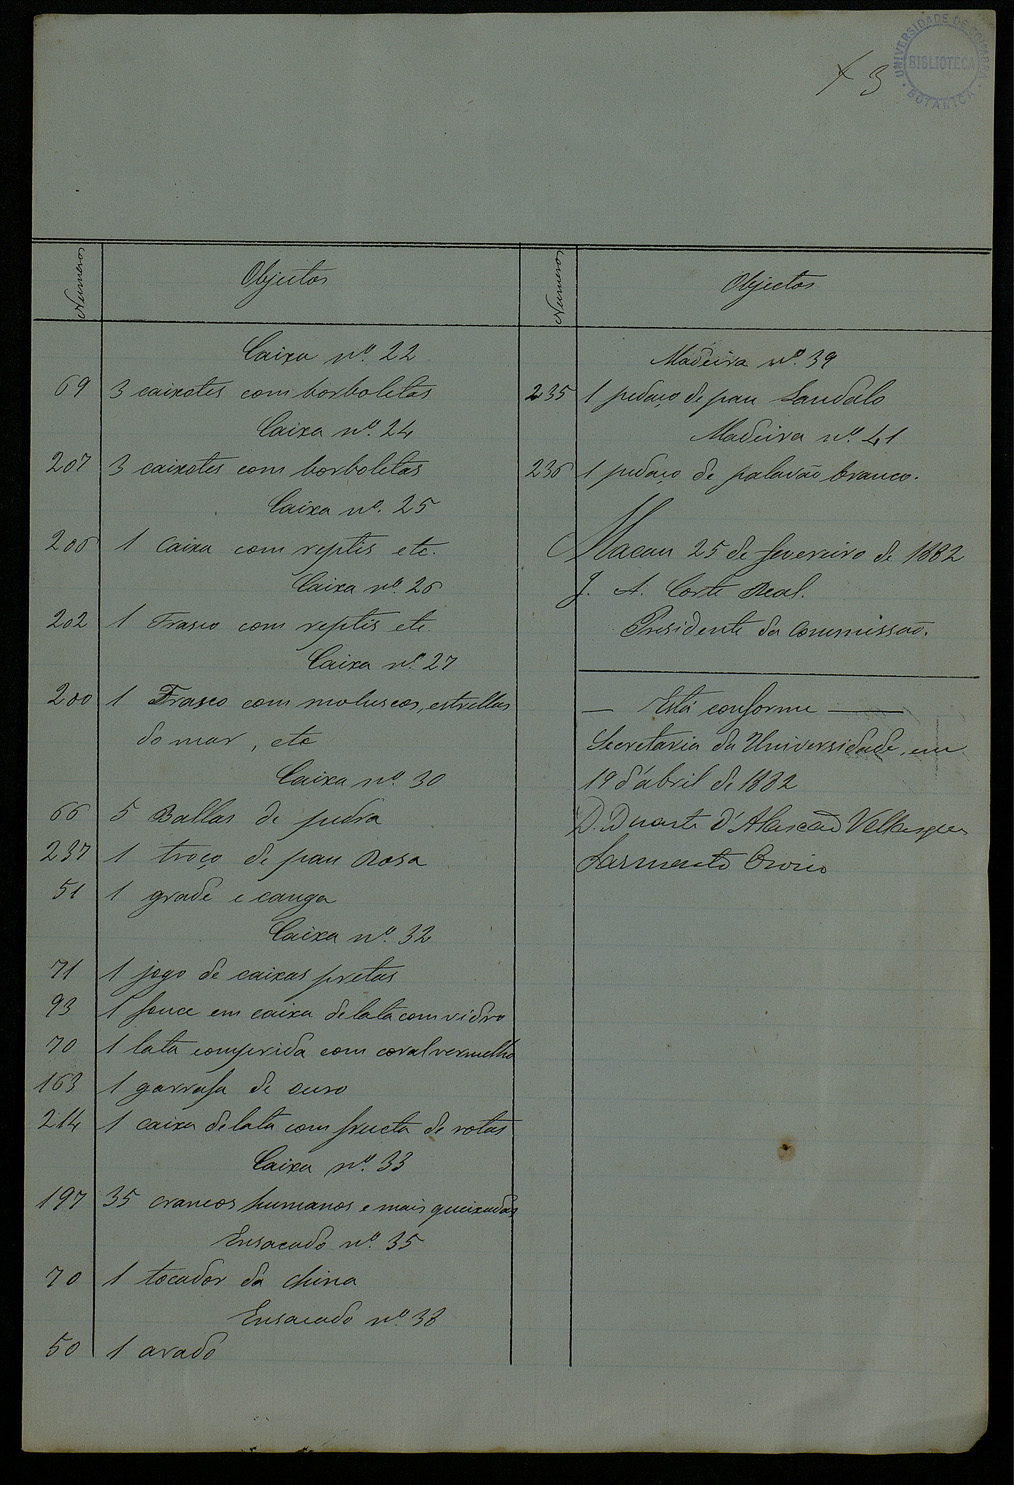 UNIVERSIDADE DE COIMBRA
BIBLIOTECA
BOTANICA
3
Numeros
Objectos
Caixa nº 22
69 3 caixotes com borboletas
Caixa nº 24
207 3 caixotes com borboletas
Caixa nº 25
206 1 Caixa com reptis etc.
Caixa nº 26
202 1 Frasco com reptis etc
Caixa nº 27
200 1 Frasco com moluscos, estrellas
do mar, etc
Caixa nº 30
66 5 Ballas de pedra
237 1 troço de pau Rosa
51 1 grade e canga
Caixa nº 32
71 1 jogo de caixas pretas
93 1 fouce em caixa de lata com vidro
70 1 lata comprida com coral vermelho
163 1 garrafa de ouro
214 1 caixa de lata com fructa de rotas
Caixa nº 33
197 35 craneos humanos e mais queixadas
Ensacado nº 35
70 1 tocador da china
Ensacado nº 38
50 1 arado
Numeros
Objectos
Madeira nº 39
235 1 pedaço de pau Sandalo
Madeira nº 41
236 1 pedaço de palavão branco.
Macau 25 de fevereiro de 1882
J. A. Corte Real.
Presidente da Commissaõ.
— Está conforme —
Secretaria da Universidade, em
19 d'abril de 1882
D. Duarte d'Alarcaõ Vellasques
Sarmento Osorio